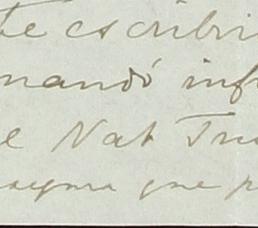 te escribir
mandó inf
l Nat Tru
que p